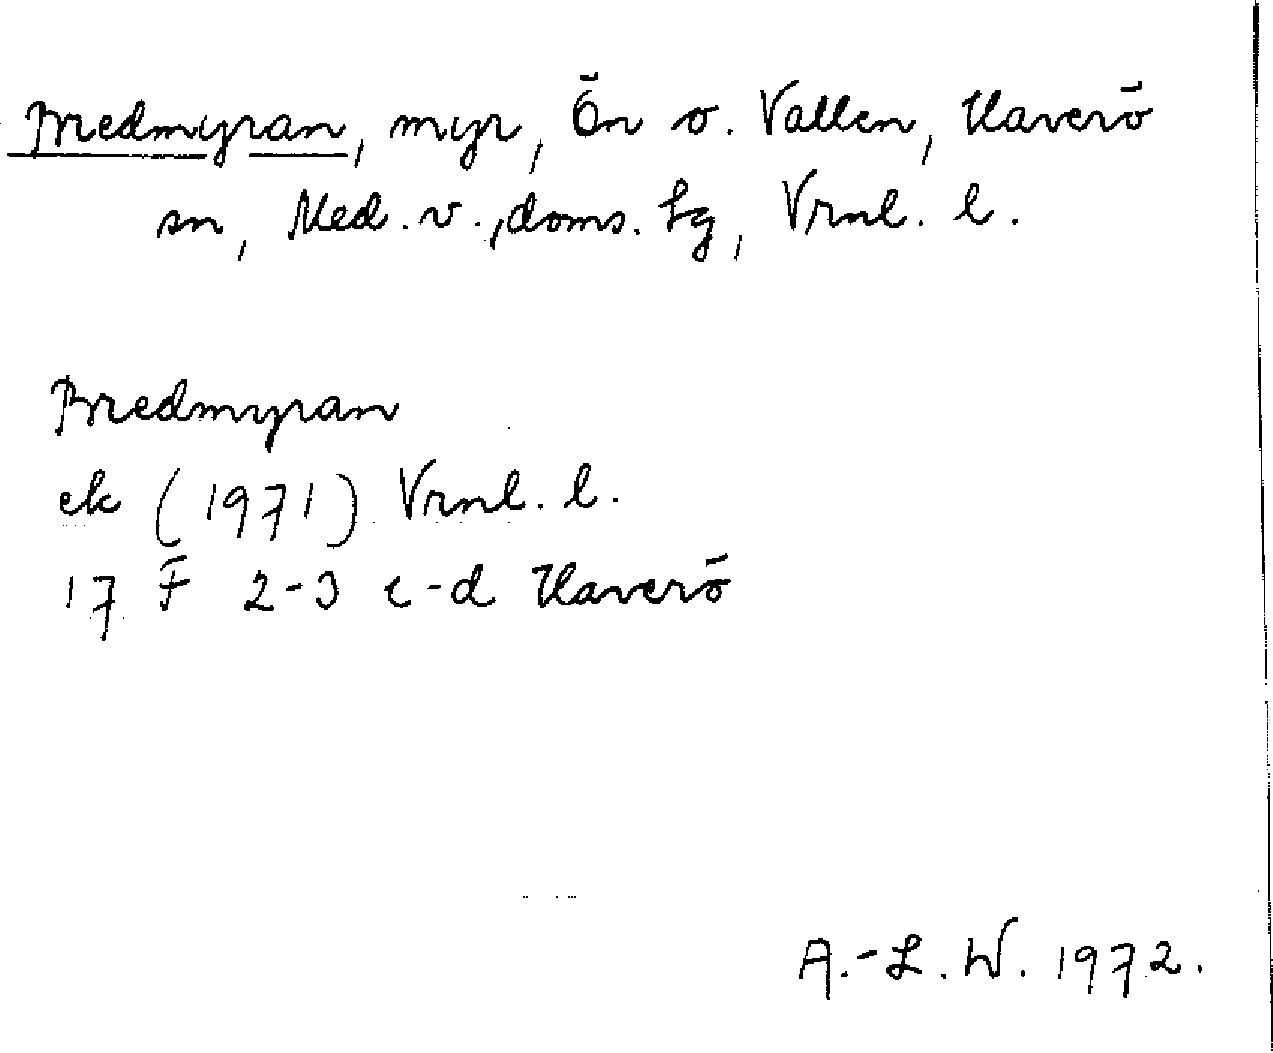 Bredmyran, myr, Ön o. Vallen, Haverö
sn, Med. v., doms. Lg, Vrnl. l.
Bredmyran
ek (1971) Vrnl. l.
17 F 2-3 c-d Haverö
A.-L. W. 1972.